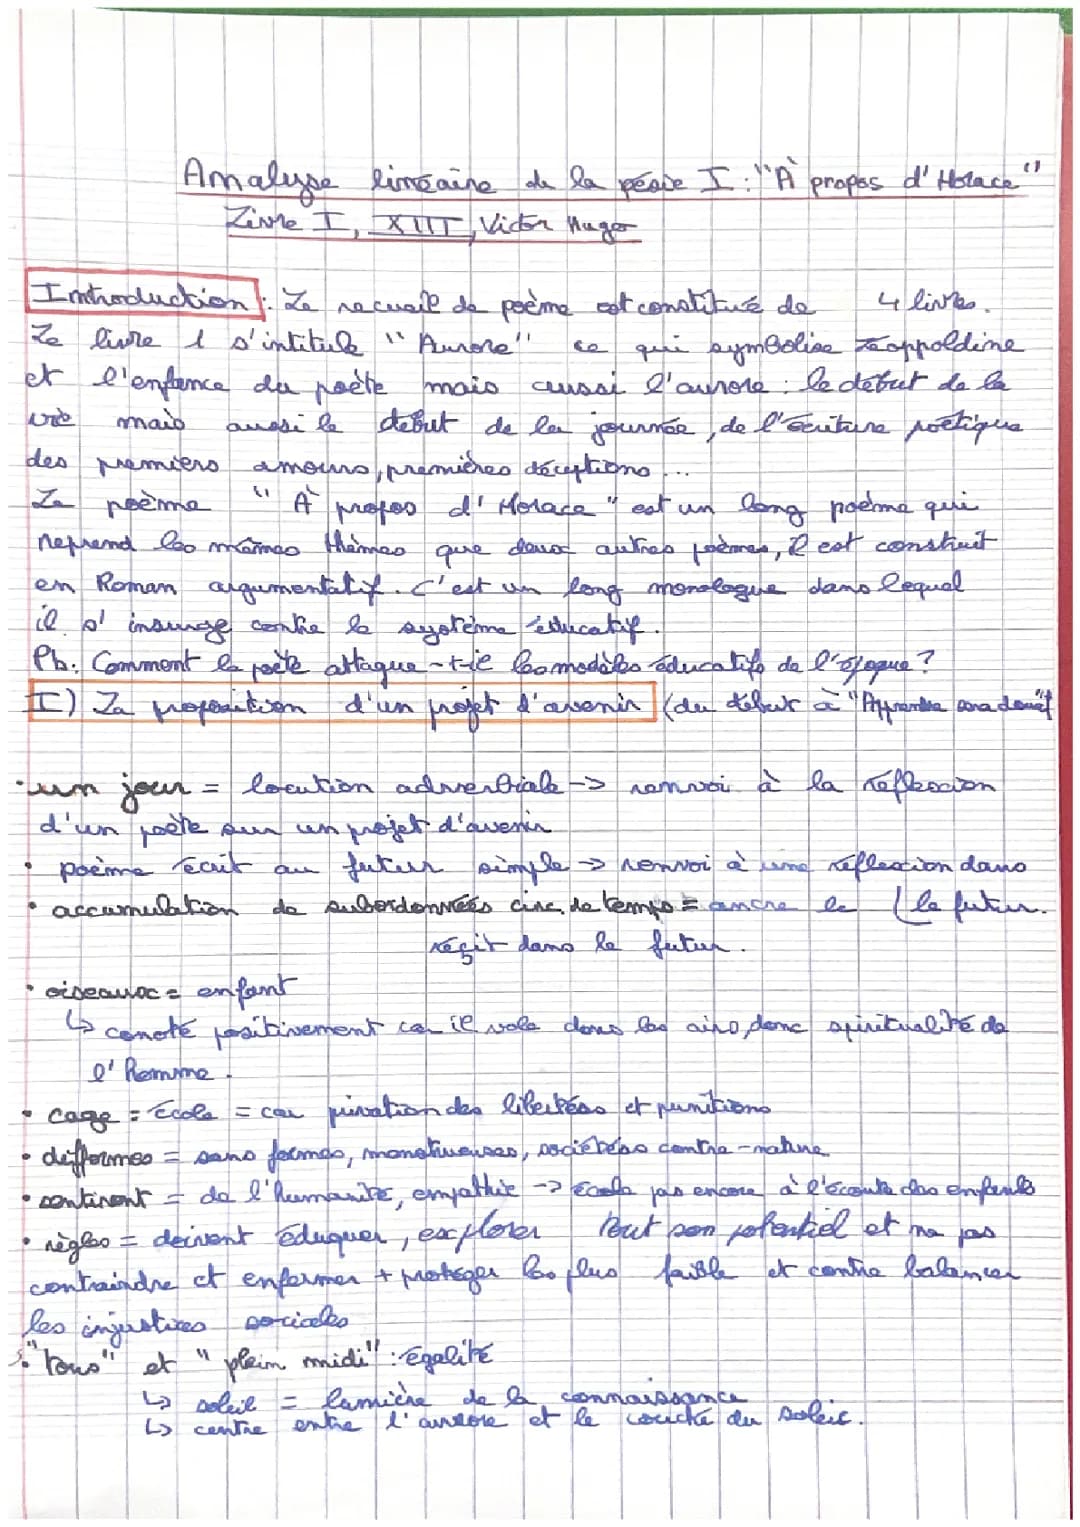 Analyse linéaire de la poésie I : "À propos d'Horace"
Livre I, XIII, Victor Hugo
Introduction : Le recueil de poème est constitué de 4 livres.
Le livre 1 s'intitule "Aurore" ce qui symbolise Léoppoldine
et l'enfance du poète mais aussi l'aurore : le début de la
vie mais aussi le début de la journée, de l'écriture poétique
des premiers amours, premières déceptions...
Le poème "À propos d'Horace" est un long poème qui
reprend les mêmes thèmes que deux autres poèmes, il est construit
en Roman argumentatif. C'est un long monologue dans lequel
il s'insurge contre le système éducatif.
Pb: Comment le poète attaque-t-il les modèles éducatifs de l'époque ?
I) La proposition d'un projet d'avenir (du début à "Apprendre sera doux"
• un jour = locution adverbiale -> renvoi à la réflexion
d'un poète sur un projet d'avenir
• poème écrit au futur simple -> renvoi à une réflexion dans
le futur.
• accumulation de subordonnées circ. de temps = ancre le
récit dans le futur.
• oiseaux = enfant
↳ conoté positivement car il vole dans les airs, donc spiritualité de
l'Homme.
• cage = école = car privation des libertées et punitions
• difformes = sans formes, monstrueuses, sociétées contre-nature
• sentiront = de l'humanité, empathie -> école pas encore à l'écoute des enfants
• règles = doivent éduquer, explorer tout son potentiel et ne pas
contraindre et enfermer + protéger les plus faible et contre balancer
les injustices sociales
• "tous" et "plein midi" : égalité
↳ soleil = lumière de la connaissance
↳ centre entre l'aurore et le couché du soleil.